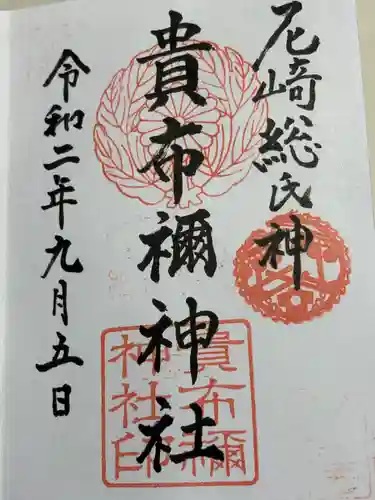 尼崎総氏神
貴布禰神社
令和二年九月五日
貴布禰
神社印